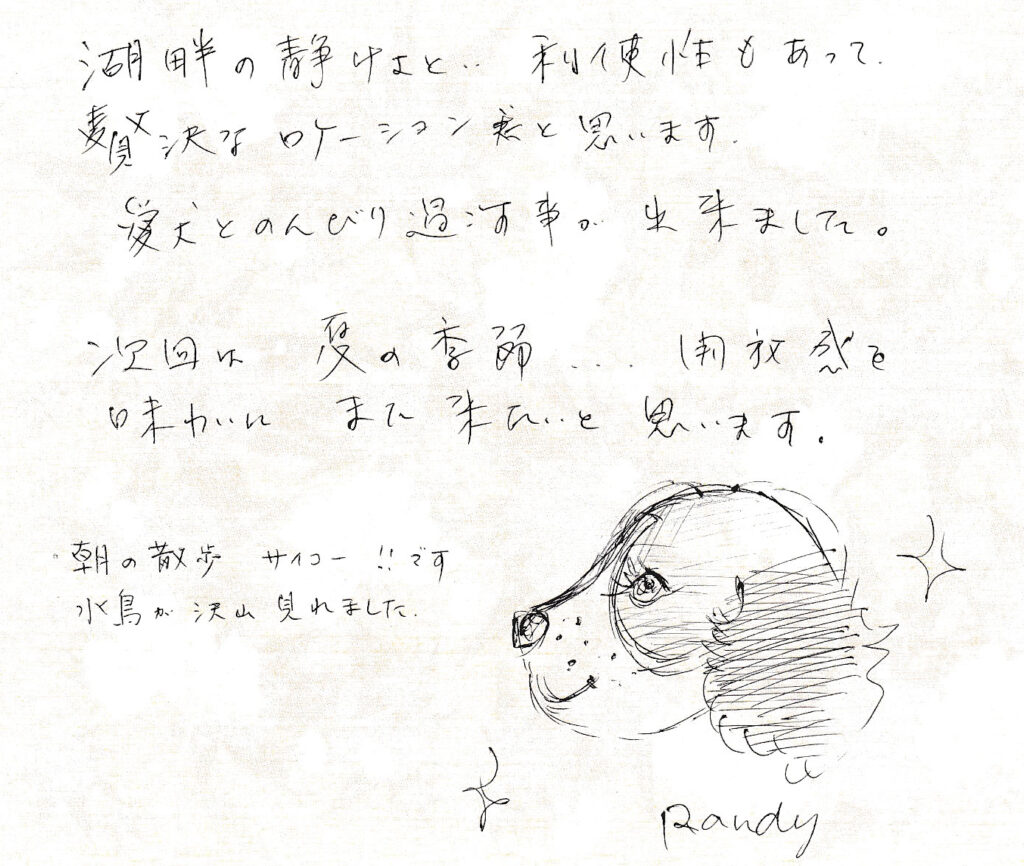 湖畔の静けさと.. 利便性もあって.
贅沢なロケーションだと思います.
愛犬とのんびり過ごす事が出来ました。
次回は 夏の季節.... 開放感を
味わいに また来たいと思います.
朝の散歩 サイコー!!です
水鳥が沢山見れました.
Randy